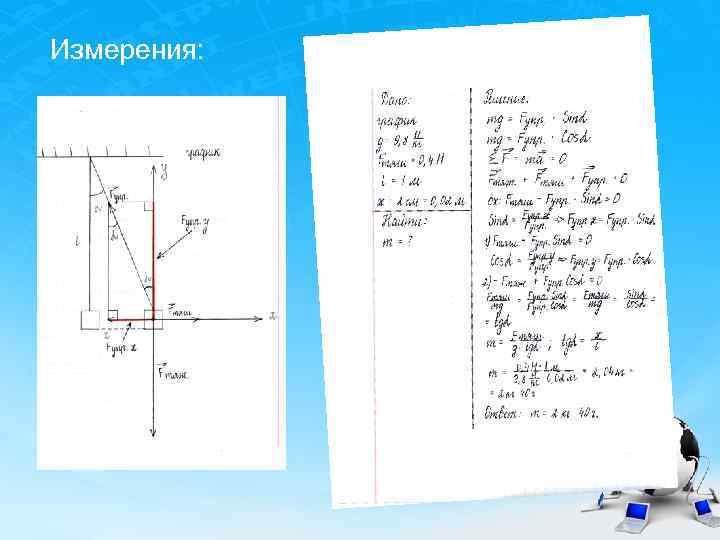 Измерения:
график
y
Fупр.
α
Fупр. y
l
α
α
Fтяги
x
x
Fупр. x
Fтяж.
Дано:
график
g = 9,8 Н/кг
Fтяги = 0,4 Н
l = 1 м
x = 2 см = 0,02 м
Найти:
m = ?
Решение:
mg = Fупр. · Sinα
mg = Fупр. · Cosα
Σ F = ma = 0
Fтяж. + Fтяги + Fупр. = 0
ox: Fтяги − Fупр. · Sinα = 0
Sinα = Fупр.x/Fупр. ⇒ Fупр.x = Fупр. · Sinα
1) Fтяги − Fупр. Sinα = 0
Cosα = Fупр.y/Fупр. ⇒ Fупр.y = Fупр. · Cosα
2) − Fтяж. + Fупр. Cosα = 0
Fтяги/mg = Fупр. Sinα/Fупр. Cosα = Fтяги/mg = Sinα/Cosα =
= tgα
m = Fтяги/g · tgα ; tgα = x/l
m = 0,4 Н · 1 м/9,8 Н/кг · 0,02 м = 2,04 кг =
= 2 кг 40 г.
Ответ: m = 2 кг 40 г.